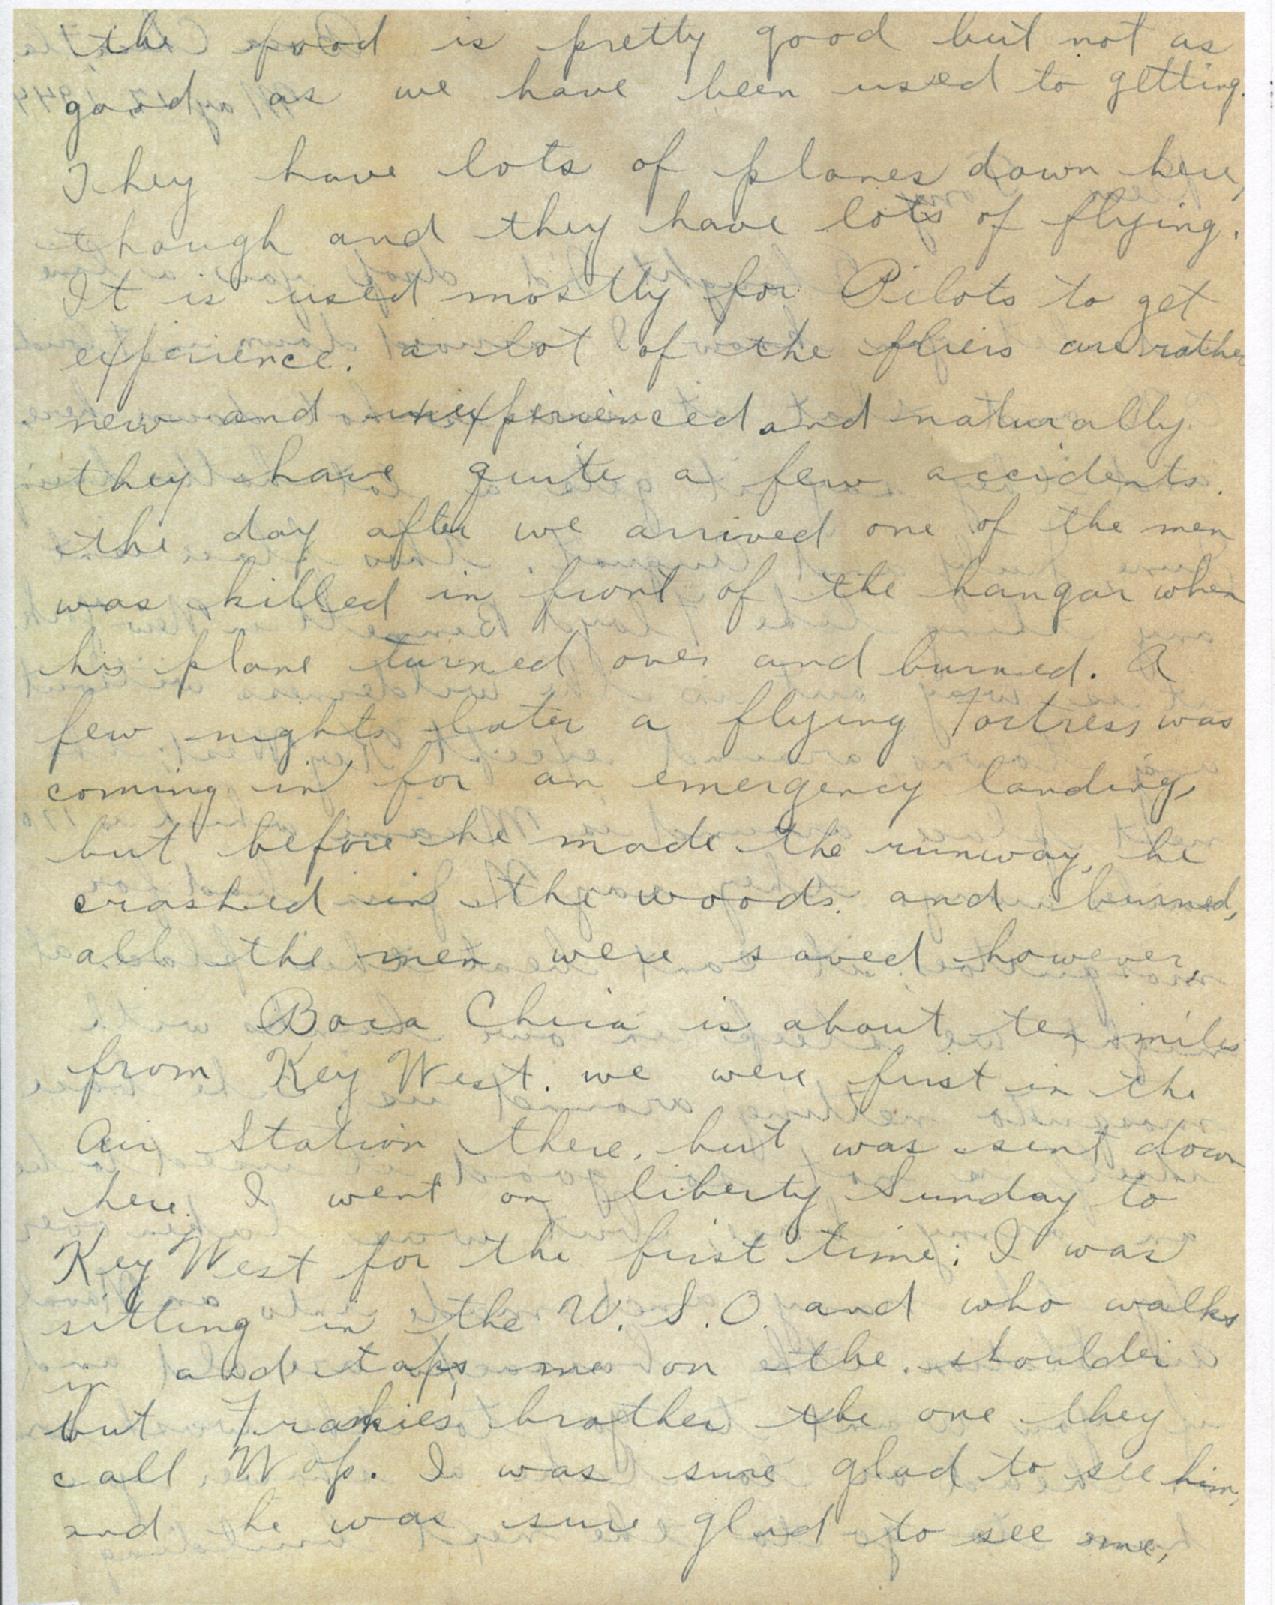 the food is pretty good but not as
good as we have been used to getting.
They have lots of planes down here,
though and they have lots of flying.
It is used mostly for Pilots to get
experience. a lot of the fliers are rather
new and inexperienced and naturally
they have quite a few accidents.
the day after we arrived one of the men
was killed in front of the hangar when
his plane turned over and burned. A
few nights later a flying Fortress was
coming in for an emergency landing,
but before he made the runway, he
crashed in the woods. and burned,
all the men were saved however,
Boca Chica is about ten miles
from Key West. we were first in the
Air Station there, but was sent down
here. I went on liberty Sunday to
Key West for the first time; I was
sitting in the U. S. O. and who walks
in and taps me on the shoulder
but Frankies brother the one they
call Wop. I was sure glad to see him,
and he was sure glad to see me,